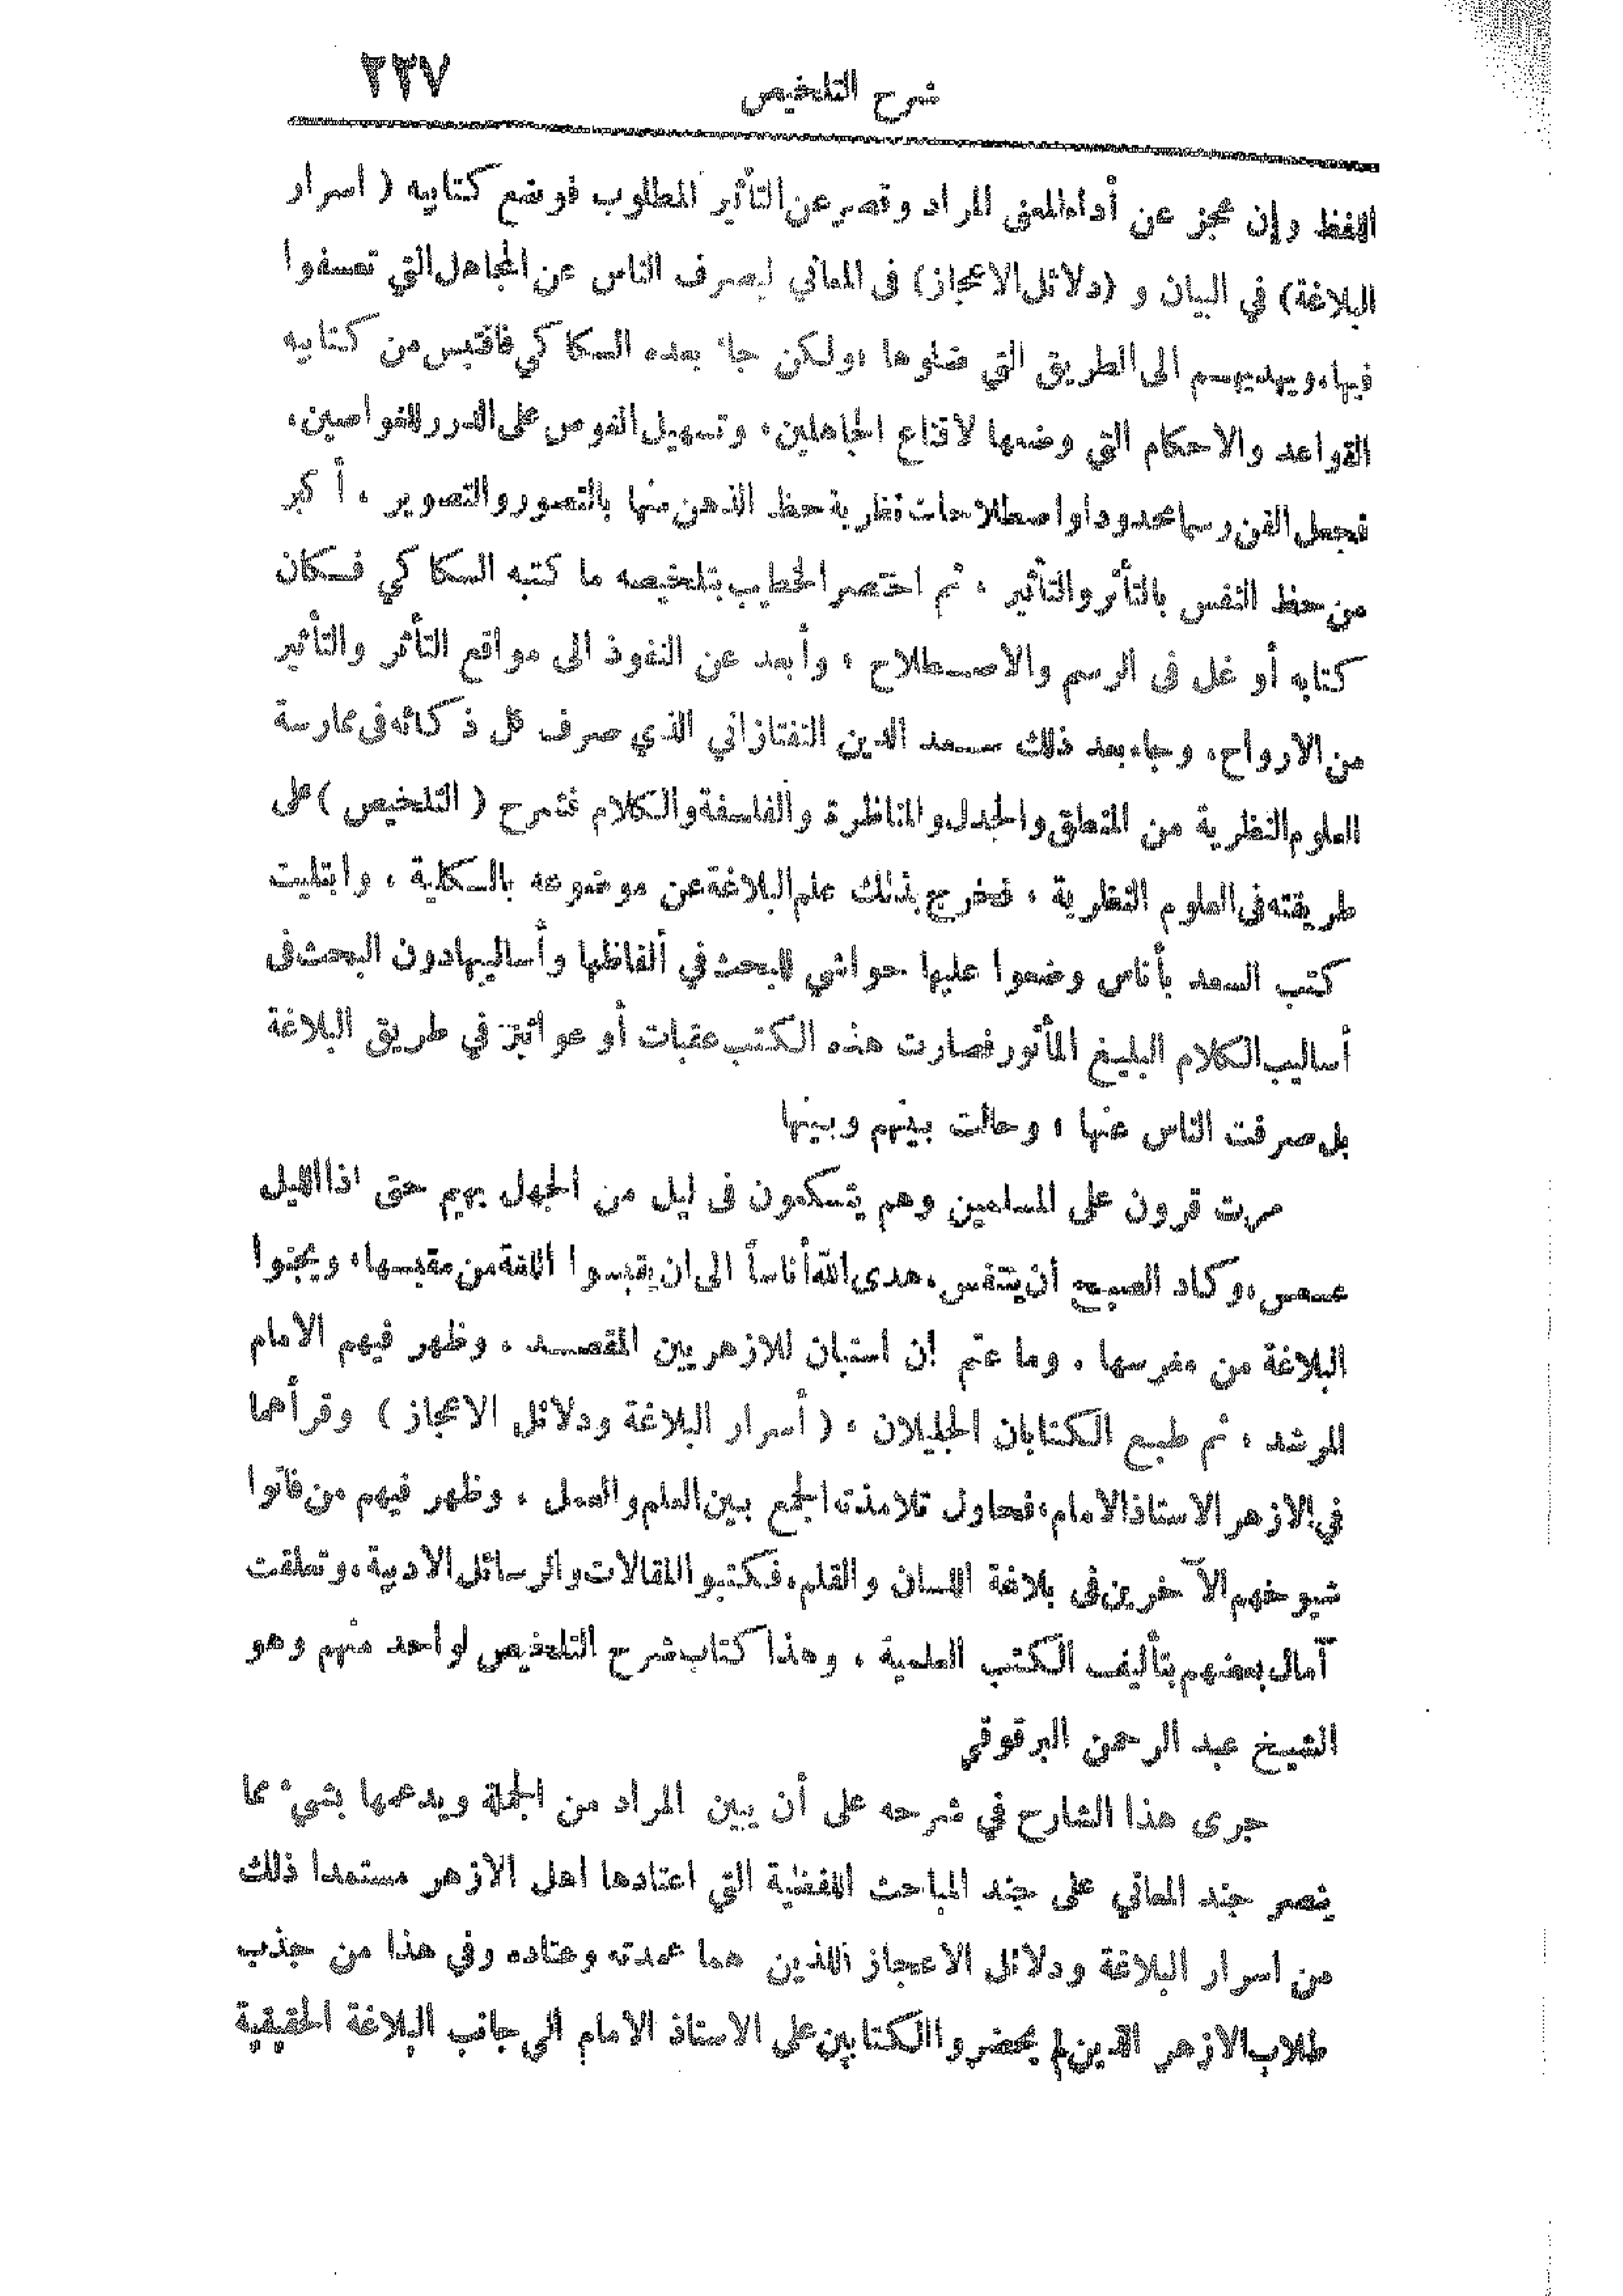 شرح التلخيص ٢٣٧
اللفظ وإن عجز عن أداء المعنى المراد وقصر عن التأثير المطلوب فوضع كتابيه ( اسرار
البلاغة) في البيان و (دلائل الاعجاز) فى المعاني ليصرف الناس عن المجاهل التي تعسفوا
فيها، ويهديهم الى الطريق التي ضلوها ، ولكن جاء بعده السكاكي فاقتبس من كتابيه
القواعد والاحكام التي وضعها لاقناع الجاهلين، وتسهيل الغوص على الدرر للغواصين،
فجعل الفن رسما محدودا واصطلاحات نظرية حظ الذهن منها بالتصور والتصوير ، أكبر
من حظ النفس بالتأثر والتأثير ، ثم اختصر الخطيب بتلخيصه ما كتبه السكاكي فكان
كتابه أوغل فى الرسم والاصطلاح ، وأبعد عن النفوذ الى مواقع التأثر والتأثير
من الارواح، وجاء بعد ذلك سعد الدين التفتازاني الذي صرف كل ذكائه فى ممارسة
العلوم النظرية من المنطق والجدل والمناظرة والفلسفة والكلام فشرح ( التلخيص ) على
طريقته فى العلوم النظرية ، فخرج بذلك علم البلاغة عن موضوعه بالكلية ، وابتليت
كتب السعد بأناس وضعوا عليها حواشي للبحث في ألفاظها وأساليبها دون البحث فى
أساليب الكلام البليغ المأثور فصارت هذه الكتب عقبات أو عواثير في طريق البلاغة
بل صرفت الناس عنها ، وحالت بينهم وبينها
مرت قرون على المسلمين وهم يتسكعون فى ليل من الجهل بهيم حتى اذا الليل
عسعس، وكاد الصبح أن يتنفس، هدى الله أناساً الى ان يقبسوا اللغة من مقبسها، ويجنوا
البلاغة من مغرسها ، وما عتم ان استبان للازهريين المقصد ، وظهر فيهم الامام
المرشد ، ثم طبع الكتابان الجليلان ، ( أسرار البلاغة ودلائل الاعجاز ) وقرأهما
في الازهر الاستاذ الامام، فحاول تلامذته الجمع بين العلم والعمل ، وظهر فيهم من فاتوا
شيوخهم الآخرين فى بلاغة اللسان والقلم، فكتبوا المقالات والرسائل الادبية، وتعلقت
آمال بعضهم بتأليف الكتب العلمية ، وهذا كتاب شرح التلخيص لواحد منهم وهو
الشيخ عبد الرحمن البرقوقي
جرى هذا الشارح في شرحه على أن يبين المراد من الجملة ويدعمها بشيء مما
ينصر جند المعاني على جند المباحث اللفظية التي اعتادها اهل الازهر مستمدا ذلك
من اسرار البلاغة ودلائل الاعجاز اللذين هما عمدته وعتاده وفي هذا من جذب
طلاب الازهر الذين لم يحضروا الكتابين على الاستاذ الامام الى جانب البلاغة الحقيقية